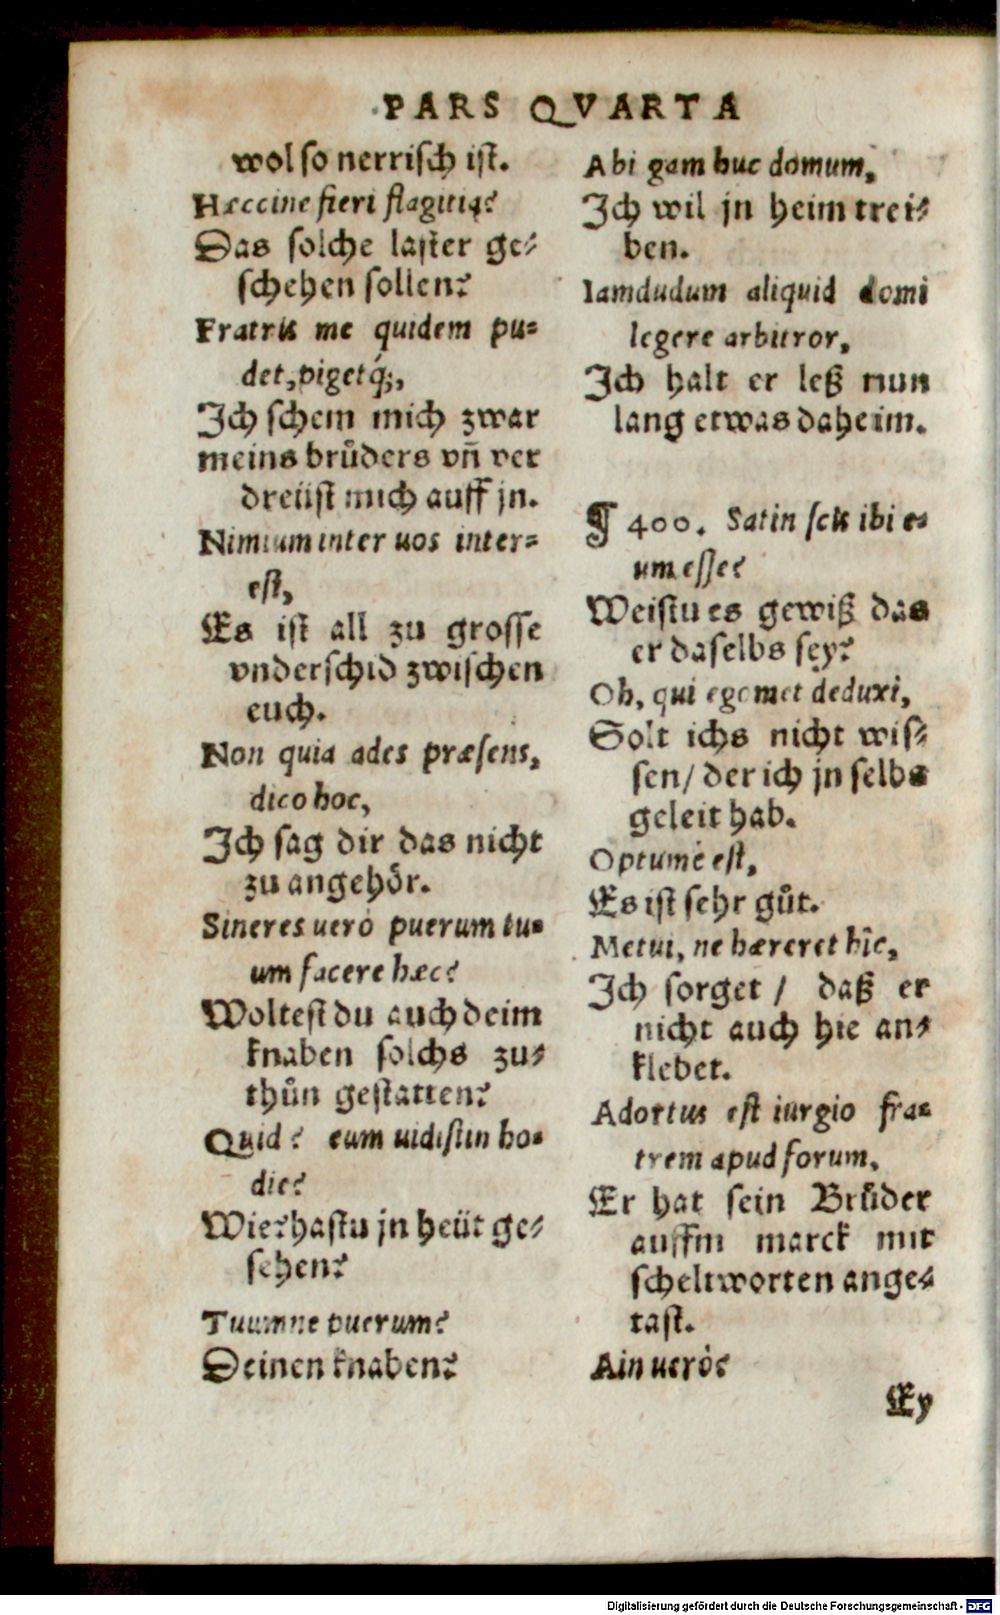 PARS QVARTA
wol so nerrisch ist.
Hæccine fieri flagitia?
Das solche laster ge⸗
schehen sollen?
Fratris me quidem pu⸗
det, pigetq́;,
Ich schem mich zwar
meins brůders vñ ver
dreüst mich auff jn.
Nimium inter uos inter⸗
est,
Es ist all zu grosse
vnderschid zwischen
euch.
Non quia ades præsens,
dico hoc,
Ich sag dir das nicht
zu angehör.
Sineres uerò puerum tu⸗
um facere hæc?
Woltest du auch deim
knaben solchs zu⸗
thůn gestatten?
Quid? eum uidistin ho⸗
die?
Wie? hastu jn heüt ge⸗
sehen?
Tuumne puerum?
Deinen knaben?
Abigam huc domum,
Ich wil jn heim trei⸗
ben.
Iamdudum aliquid domi
legere arbitror,
Ich halt er leß nun
lang etwas daheim.
¶ 400. Satin scis ibi e⸗
um esse?
Weistu es gewiß das
er daselbs sey?
Oh, qui egomet deduxi,
Solt ichs nicht wis⸗
sen/ der ich jn selbs
geleit hab.
Optumè est,
Es ist sehr gůt.
Metui, ne hæreret hîc,
Ich sorget / daß er
nicht auch hie an⸗
klebet.
Adortus est iurgio fra⸗
trem apud forum,
Er hat sein Brůder
auffm marck mit
scheltworten ange⸗
tast.
Ain uerò?
Ey
Digitalisierung gefördert durch die Deutsche Forschungsgemeinschaft - DFG